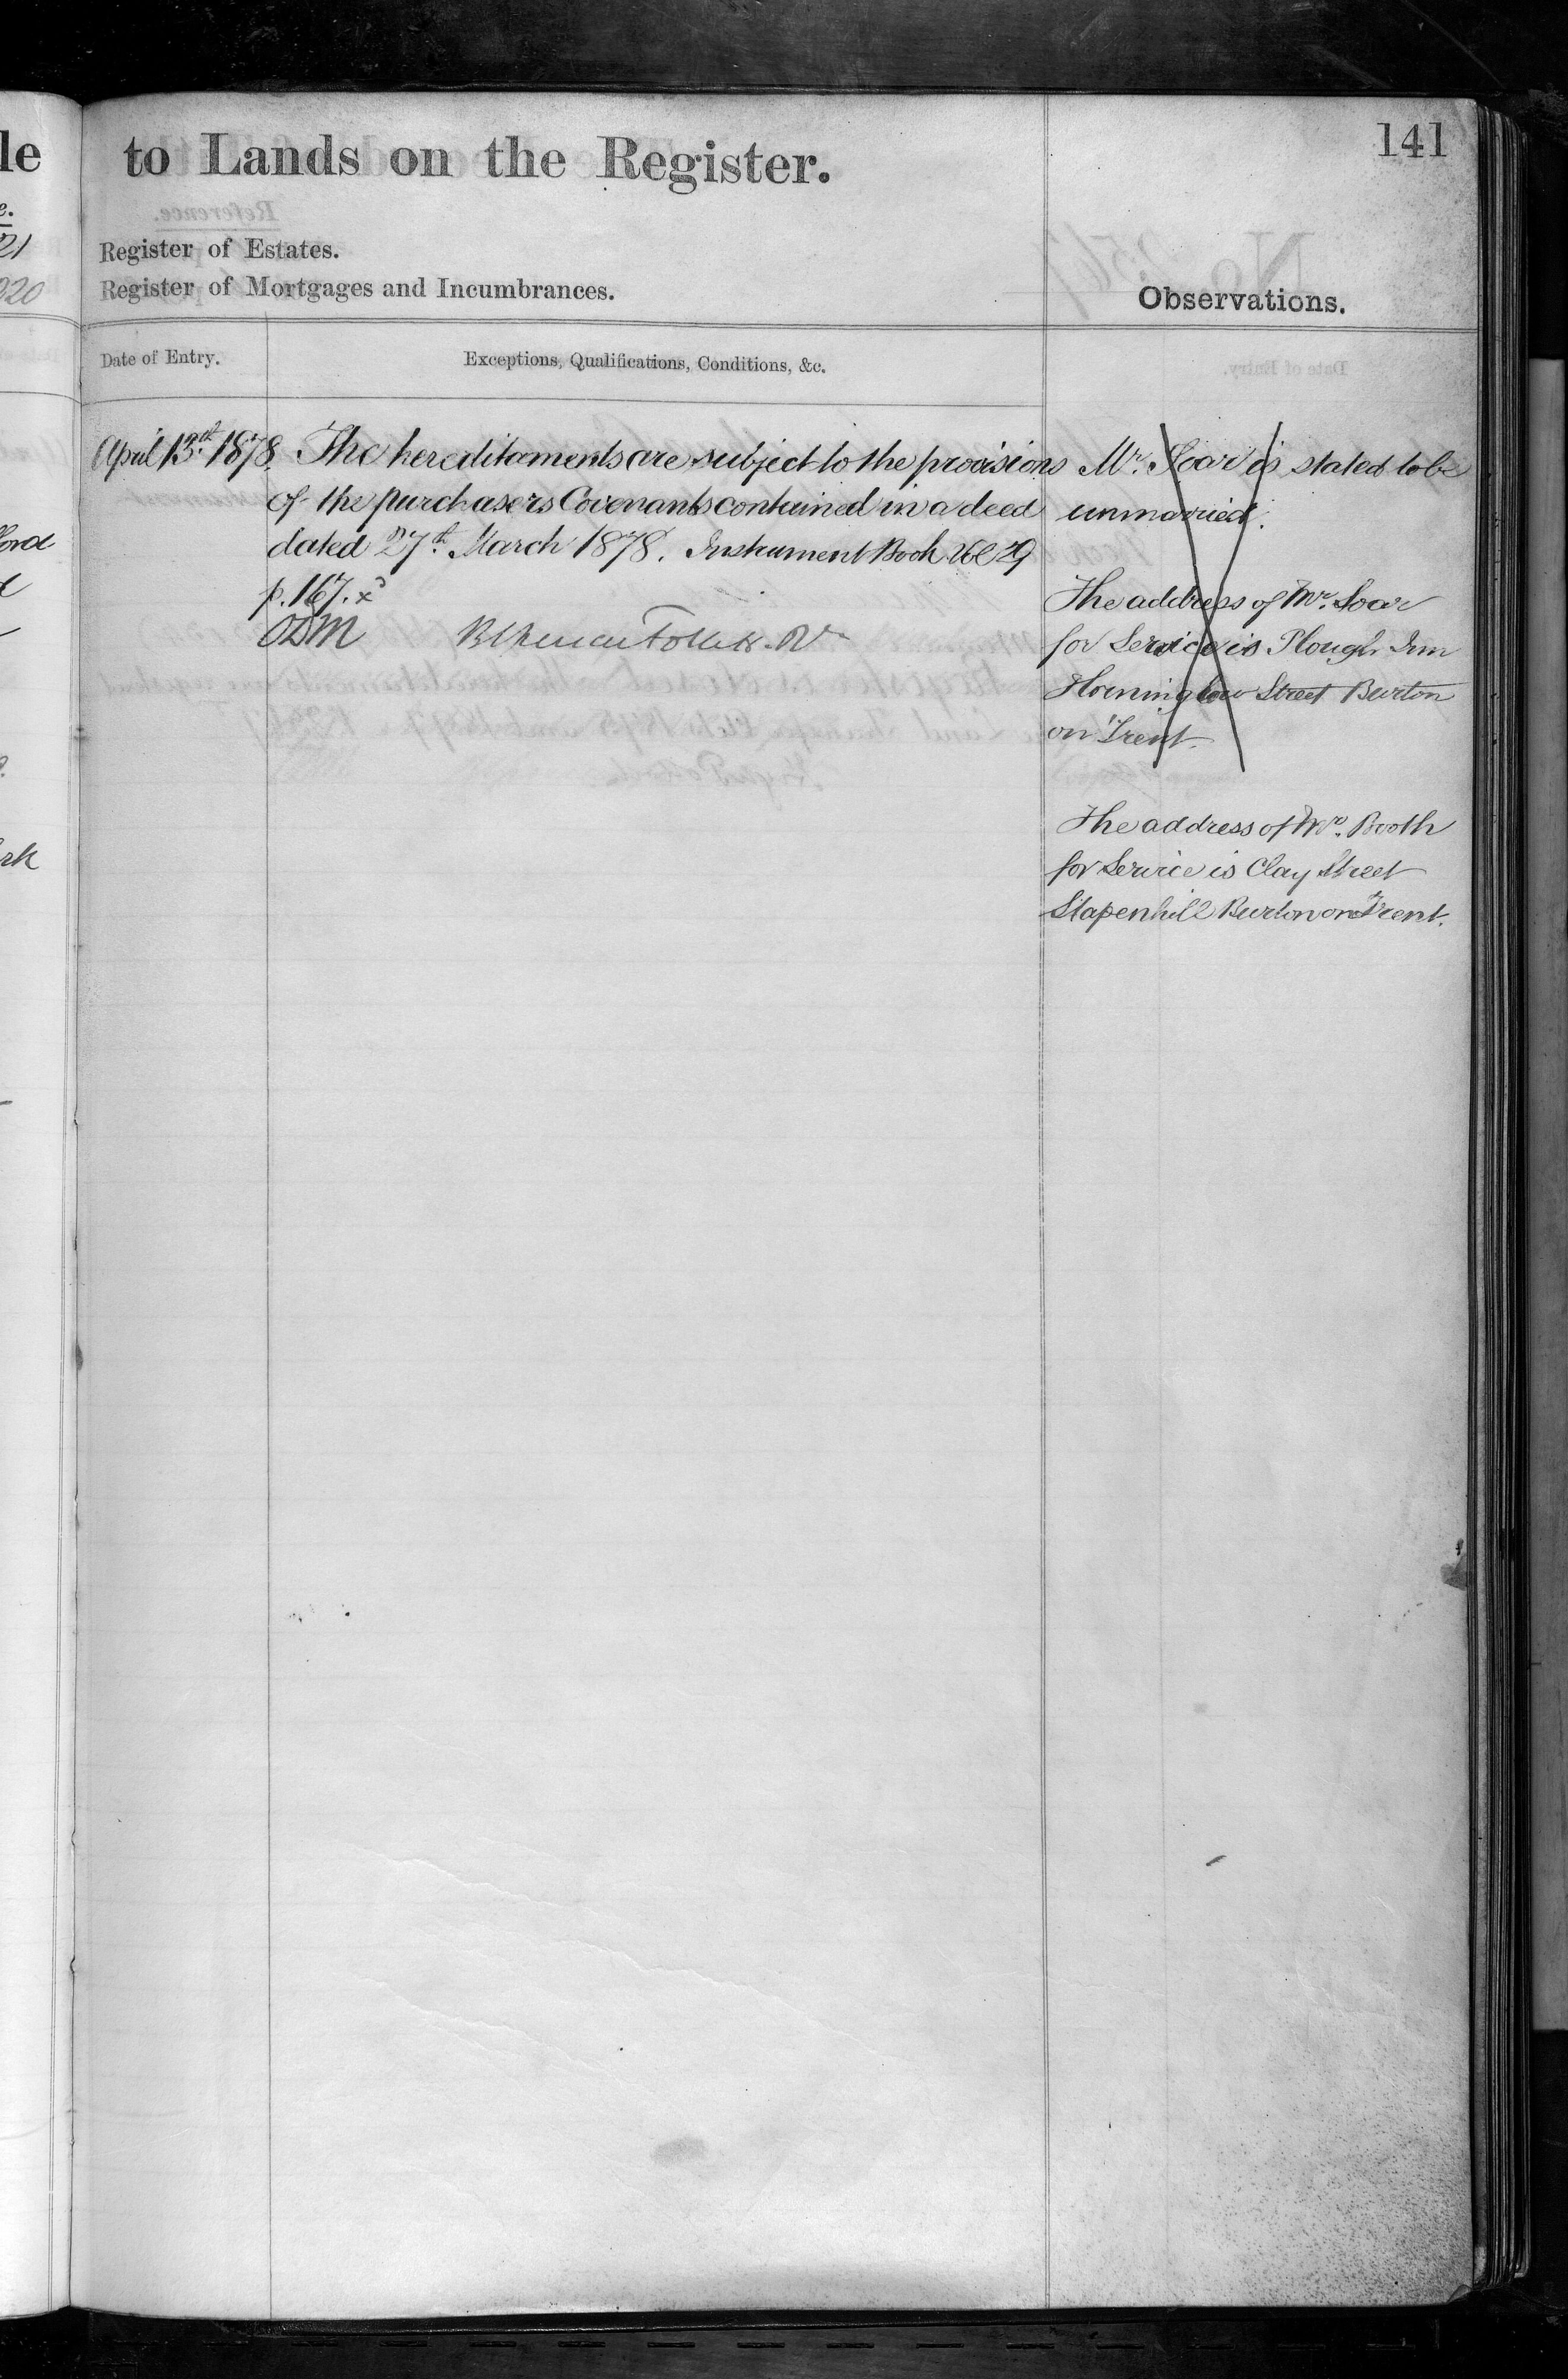 141
le to Lands on the Register.
21
Register of Estates.
020
Register of Mortgages and Incumbrances.
Observations.
Date of Entry.
Exceptions, Qualifications, Conditions, &c.
April 13th 1878
The hereditaments are subject to the provisions
of the purchasers Covenants contained in a deed
dated 27th March 1878. Instrument Book Vol 29
p. 167. x
ODM
Mr. Soar is stated to be
unmarried.
The address of Mr. Soar
for Service is Plough Inn
Horninglow Street Burton
on Trent.
The address of Mr. Booth
for Service is Clay Street
Stapenhill Burton on Trent.